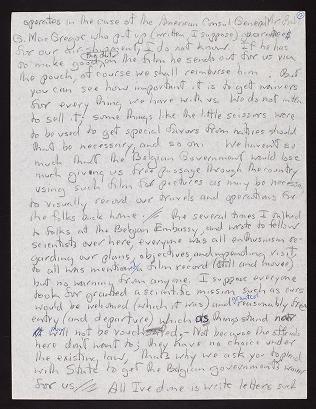 operates in the case of the American Consul General Mr. Robt
G. MacGregor who put up (written, I suppose) guarantees
for our air shipment, I do not know. If he has
to make good on the film he sends out for us via
the duty
the pouch, of course we shall reimburse him. But
you can see how important it is to get waivers
for everything we have with us. We do not intend
to sell it; some things like the little scissors were
to be used to get special favors from natives should
that be necessary and so on. We haven't so
much that the Belgian Government would lose
much giving us free passage through the country
using such film for pictures as may be necessary
to visually record our travels and operations for
the folks back home. The several times I talked
to folks at the Belgian Embassy, and wrote to fellow
scientists over here, everyone was all enthusiasm re-
garding our plans, objectives, and impending visit
to all was mention film record (still and movie)
but no warning from anyone. I suppose everyone
took for granted a scientific mission such as ours
would be welcomed (which it was) and granted reasonably free
entry (and departure) which as things stand now
it will not be vouched. Not because the
here don't want to; they have no choice under
the existing law. That's why we ask you to plead
with State to get the Belgian government's waiver
for us. All I've done is write letters such